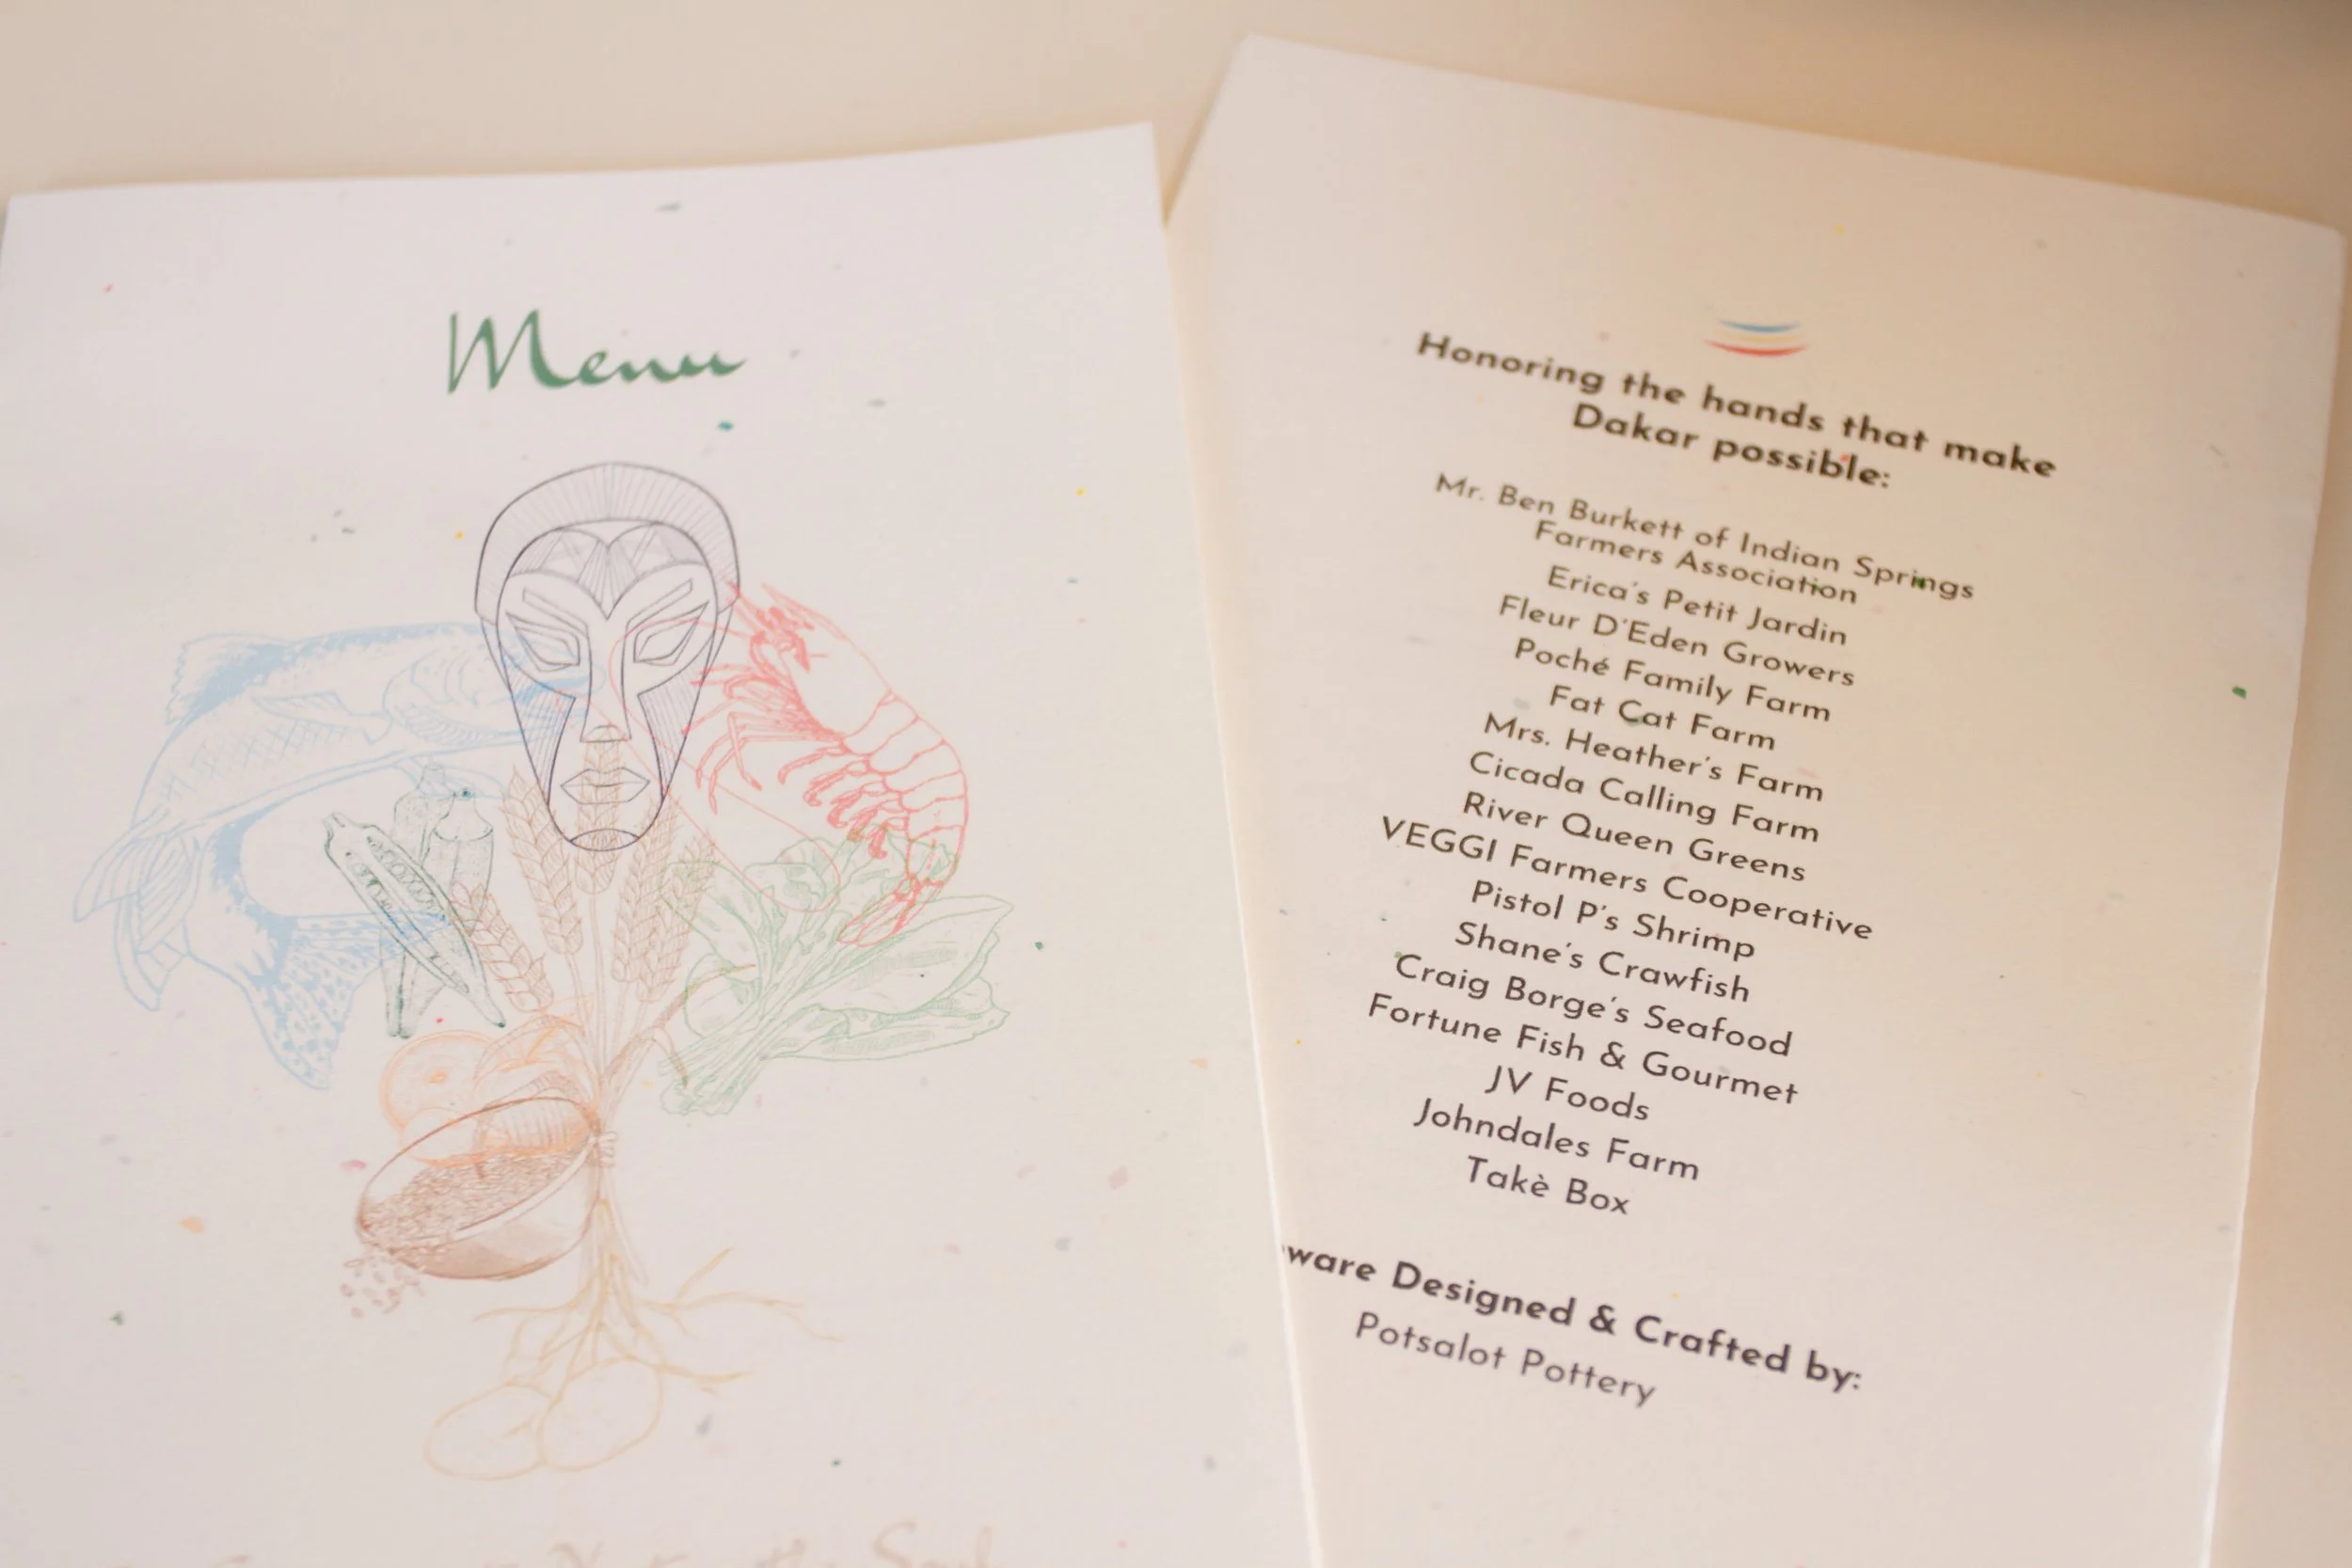 Menu
Soul
Honoring the hands that make
Dakar possible:
Mr. Ben Burkett of Indian Springs
Farmers Association
Erica's Petit Jardin
Fleur D'Eden Growers
Poché Family Farm
Fat Cat Farm
Mrs. Heather's Farm
Cicada Calling Farm
River Queen Greens
VEGGI Farmers Cooperative
Pistol P's Shrimp
Shane's Crawfish
Craig Borge's Seafood
Fortune Fish & Gourmet
JV Foods
Johndales Farm
Takè Box
ware Designed & Crafted by:
Potsalot Pottery